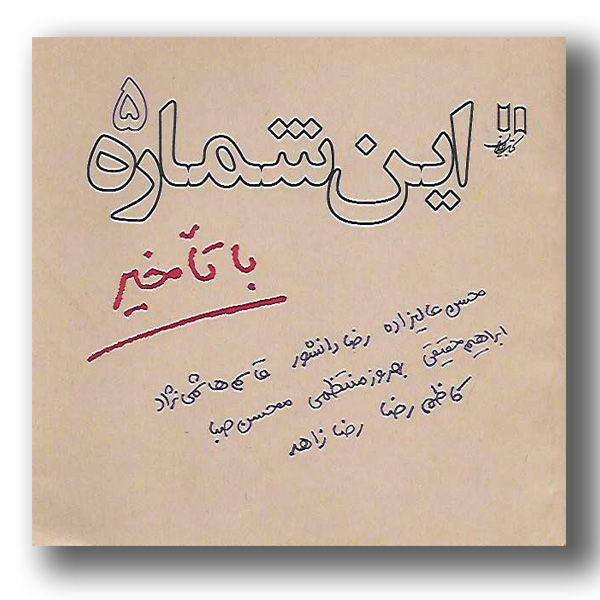 این شماره ۵
با تأخیر
محسن عالیزاده رضا دانشور قاسم هاشمی نژاد
ابراهیم حقیقی بهروز منتظمی محسن صبا
کاظم رضا رضا زاهد